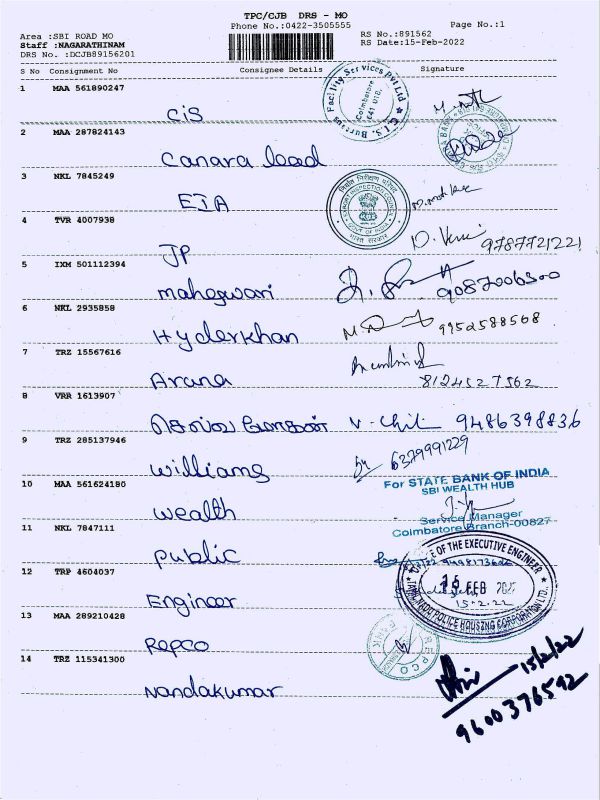 TPC/CJB DRS - MO
Phone No.:0422-3505555
Page No.:1
Area :SBI ROAD MO
Staff :NAGARATHINAM
DRS No. :DCJB89156201
RS No.:891562
RS Date:15-Feb-2022
S No Consignment No Consignee Details Signature
1 MAA 561890247
CIS
C.I.S. Bureaus Facility Services Pvt Ltd
Coimbatore
641 018.
2 MAA 287824143
Canara lead
3 NKL 7845249
EIA
निर्यात निरीक्षण परिषद
EXPORT INSPECTION COUNCIL
GOVT OF INDIA
भारत सरकार
4 TVR 4007938
JP
9787721221
5 IXM 501112394
maheswari
9087006300
6 NKL 2935858
Hyderkhan
9952588568
7 TRZ 15567616
Aruna
8124527562
8 VRR 1613907
V. 9486398836
9 TRZ 285137946
williams
6379991229
10 MAA 561624180
wealth
For STATE BANK OF INDIA
SBI WEALTH HUB
Service Manager
Coimbatore Branch-00827
11 NKL 7847111
Public
12 TRP 4604037
Engineer
OFFICE OF THE EXECUTIVE ENGINEER
15 FEB
15.2.22
TAMILNADU POLICE HOUSING CORPORATION LTD.
13 MAA 289210428
Repco
REPCO BANK
14 TRZ 115341300
Nandakumar
15/2/22
9600376592